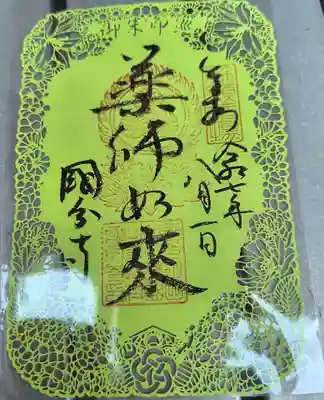 御朱印
奉拝
令和七年
八月一日
薬師如來
國分寺